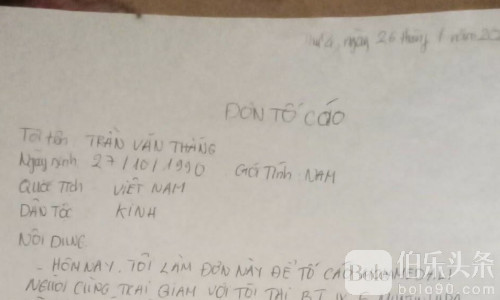 ngày 26 tháng 1 năm
ĐƠN TỐ CÁO
Tôi tên TRẦN VĂN THẮNG
Ngày sinh 27/10/1990 Giới Tính: NAM
Quốc Tịch VIỆT NAM
DÂN TỘC KINH
NỘI DUNG
- HÔM NAY, TÔI LÀM ĐƠN NÀY ĐỂ TỐ CÁO
NGƯỜI CÙNG TRẠI GIAM VỚI TÔI TẠI
伯乐头条
bole90.com